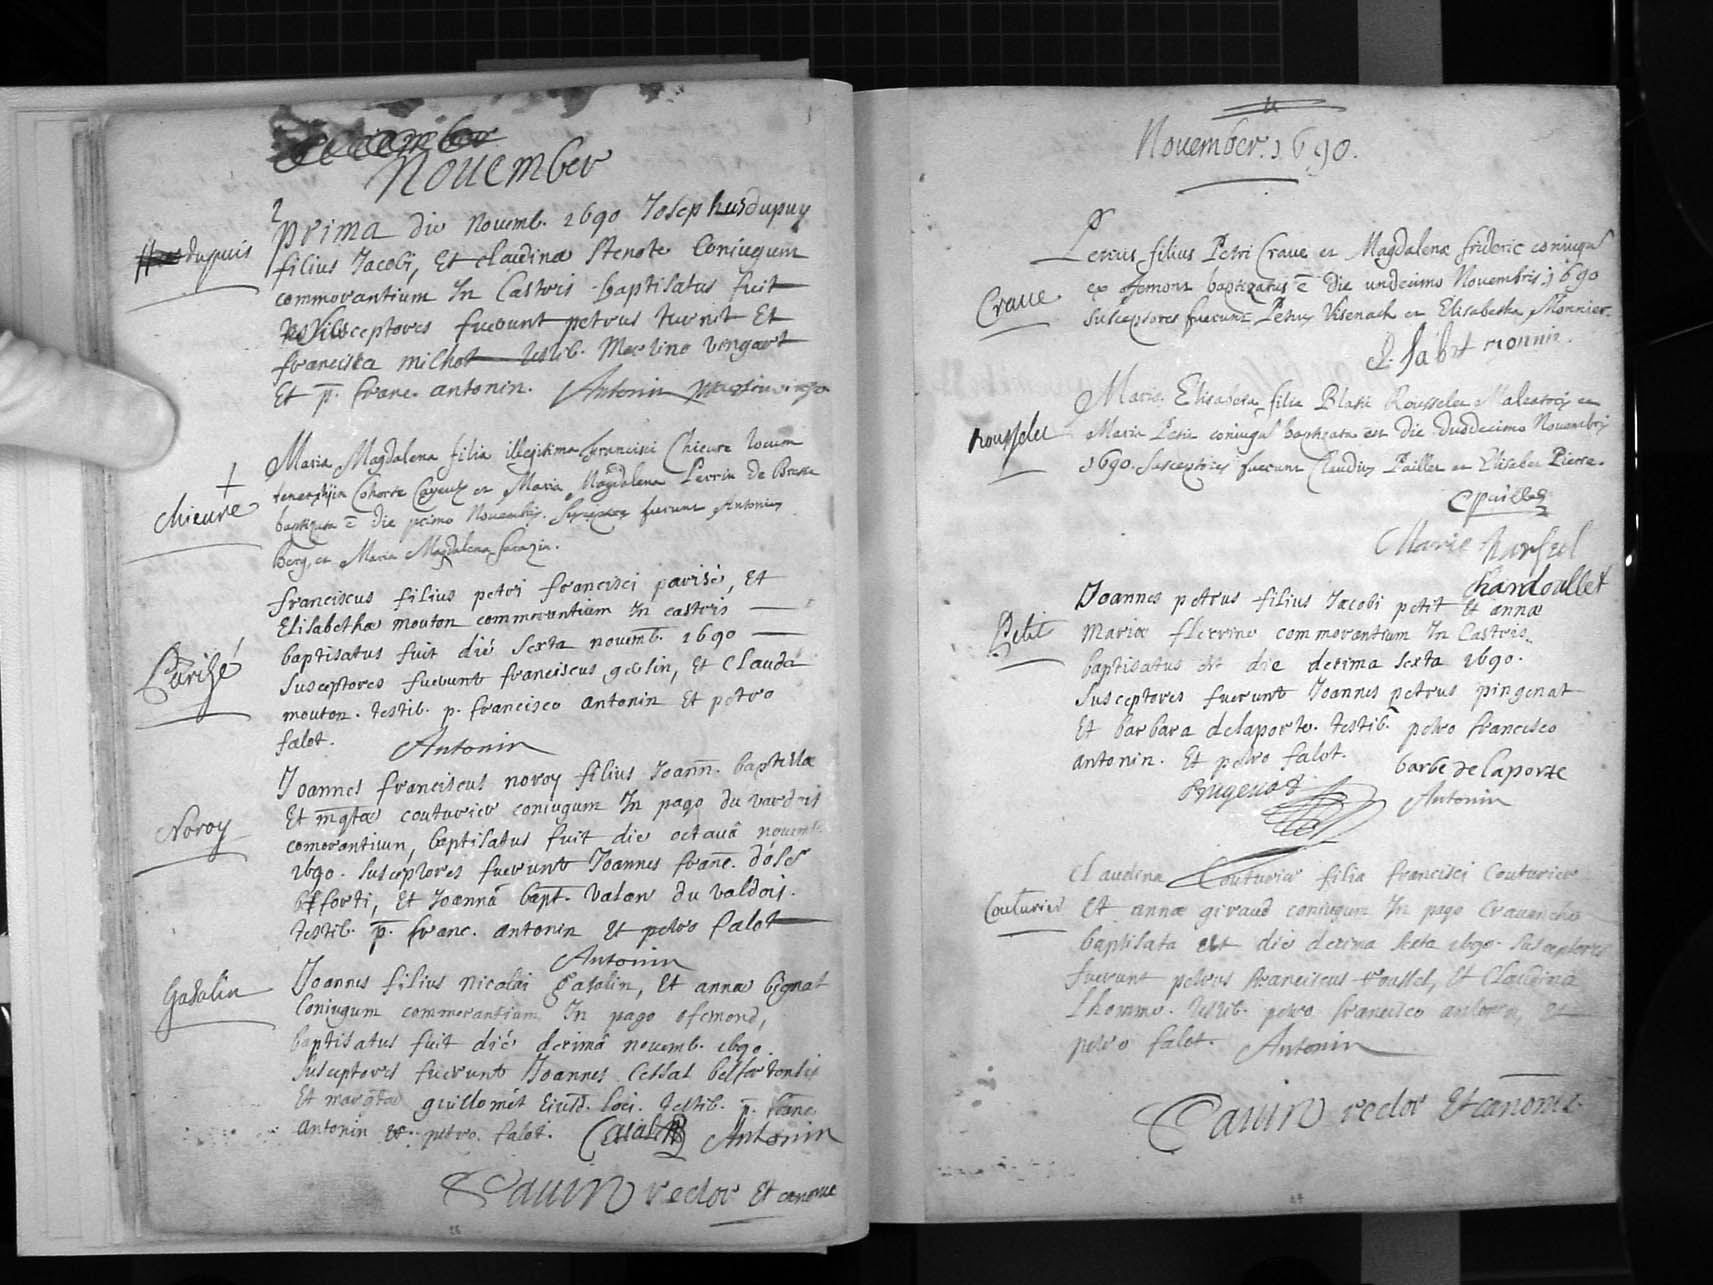 November
dupuis
prima die Novemb. 1690 Josephus dupuy
filius Jacobi, Et claudinæ Stenote Coniugum
commorantium In Castris baptisatus fuit
susceptores fuerunt petrus turnit Et
francisca michot testib. Martino vengart
Et p. franc. antonin. Antonin
chieure
Maria Magdalena filia illegitima Francisci Chieure locum
Cohorte et Maria Magdalena Perrin de
baptizata ē die primo Novembris. fuerunt Antonius
Berg, et Maria Magdalena Sarazin.
Parizé
franciscus filius petri francisci parisé, Et
Elisabethæ mouton commorantium In castris
baptisatus fuit dié sexta novemb. 1690
Susceptores fuerunt franciscus geslin, Et Clauda
mouton. testib. p. francisco antonin Et petro
falot. Antonin
Noroy
Joannes franciscus noroy filius Joann. baptistæ
Et mgtæ couturier coniugum In pago du vardois
comorantium, baptisatus fuit die octauâ novemb.
1690. susceptores fuerunt Joannes franc.
Et Joannâ bapt. valon du valdois.
testib. p. franc. antonin Et petro falot
Antonin
Gasalin
Joannes filius nicolai Gasalin, Et annæ bignat
Coniugum commorantium In pago ofemond,
baptisatus fuit dié decimâ novemb. 1690.
Susceptores fuerunt Joannes Cessal belfortensis
Et margtæ guillomét Eiusd. loci. testib. p. franc.
antonin et petro falot. Antonin
rector Et canonic
November. 1690.
Craue
Petrus filius Petri Craue et Magdalenæ frideric coniugum
ex ofemont baptizatus ē die undecimo Novembris 1690
Susceptores fuerunt Petrus Visenach et Elisabetha Monnier.
monnin.
Rousselet
Maria Elisabeta filia Blasii Rousselet et
Mariæ Petit coniugum baptizata est die duodecimo Novembris
1690. Susceptores fuerunt Claudius Paillet et Elisabet Pierre.
Marie
chardouillet
Petit
Joannes petrus filius Jacobi petit Et annæ
mariæ commorantium In Castris.
baptisatus est die decima sexta 1690.
Susceptores fuerunt Joannes petrus pingenat
Et barbara delaporte. testib. petro francisco
antonin. Et petro falot. barbe delaporte
Antonin
Couturier
Claudina Couturier filia francisci Couturier
Et annæ giraud coniugum In pago Crauanche
baptisata est die decima sexta 1690. Susceptores
fuerunt petrus franciscus roussel, Et Claudina
Lhomme. testib. petro francisco antonin, Et
petro falot. Antonin
rector Et canonic.